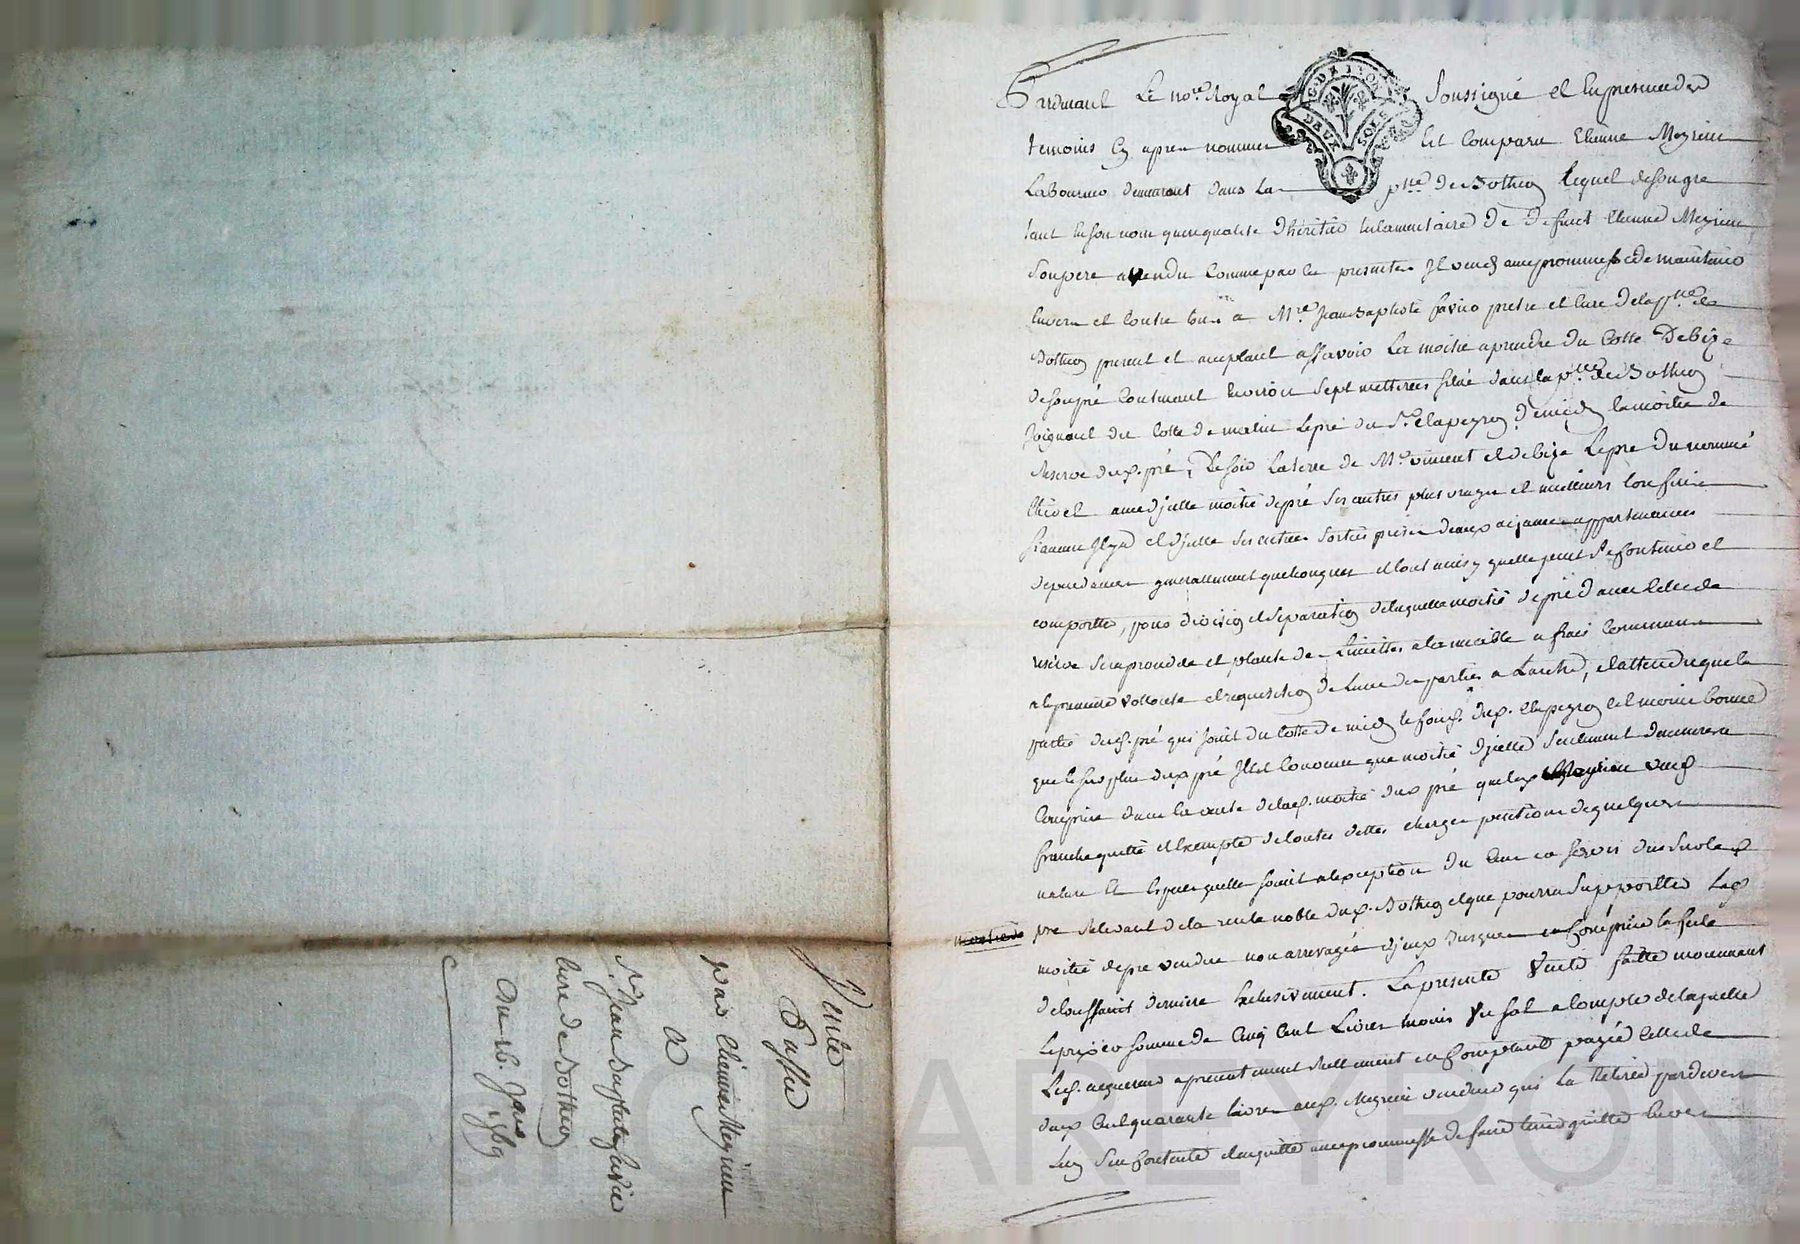 Pardevant Le no.re Royal Soussigné et En presence des
temoins Cy apres nommes Est Comparu Etienne Meyrieu
Laboureur demeurant dans La p.sse de Bothieu lequel de son gré
tant En son nom qu'en qualité d'héritier testamentaire de deffunt Etienne Meyrieu
Son pere a vendu Comme par les presentes Il vend avec promesse de maintenir
Envers et Contre tous a M.re Jean Baptiste pretre et Curé de la p.sse de
Bothieu present et acceptant assavoir La moitié a prendre du Cotté De bize
de son pré Contenant Environ Sept metterées Situé dans la p.sse de Bothieu
Joignant du Cotté de matin Le pré du S.r Clapeyron de midy la moitié de
Reserve dud. pré, De soir La terre de M.r Vincent et de bize Le pré Du nommé
avec d'icelle moitié de pré Ses autres plus vrays et meilleurs Confins
Si aucuns Il y a et d'icelle Ses entrées Sorties prises d'eaux aisances appartenances
dependances generallement quelconques et tout ainsy quelle peut Se Contenir et
comporter, pour division et Separation de laquelle moitié de pré d'avec Celle de
reserve Sera procédé et planté des Limittes a l'amiable a frais Communs
a la premiere vollonté et requisition de L'une des parties a L'autre, et attendu que la
partie dud. pré qui Joint du Cotté de midy le fond. dud. Clapeyron Est moins bonne
que le Surplus dud. pré Il est Convenu que moitié d'icelle Seulement demeurera
Comprise dans la vente de lad. moitié dud. pré que led. Meyrieu vend
franche quitte et Exempte de toutes dettes charges pentions de quelques
nature Et Especes quelle Soient a l'exception du Cens et Servis dus Sur led.
pré Relevant de la rente noble dud. Bothieu et que pourra Supporter Lad.
moitié de pré vendue non arreragés d'iceux Jusques et Compris la fete
de toussaint derniere Exclusivement. La presente Vente faitte moyennant
Le prix et somme de Cinq Cent Livres moins Un Sol a Compte de laquelle
Led. acquereur a presentement reellement et Comptant payée Celle de
deux Cent quarante Livres aud. Meyrieu vendeur qui La Retirée pardevers
Luy S'en Contente et en quitte avec promesse de faire tenir quitte Envers
G. DE LYON
DEUX SOLS
Vente
Passée
Par Etienne Meyrieu
A
S.r Jean Baptiste
Curé de Bothieu
Du 16. Janv. 1769
CHAREYRON